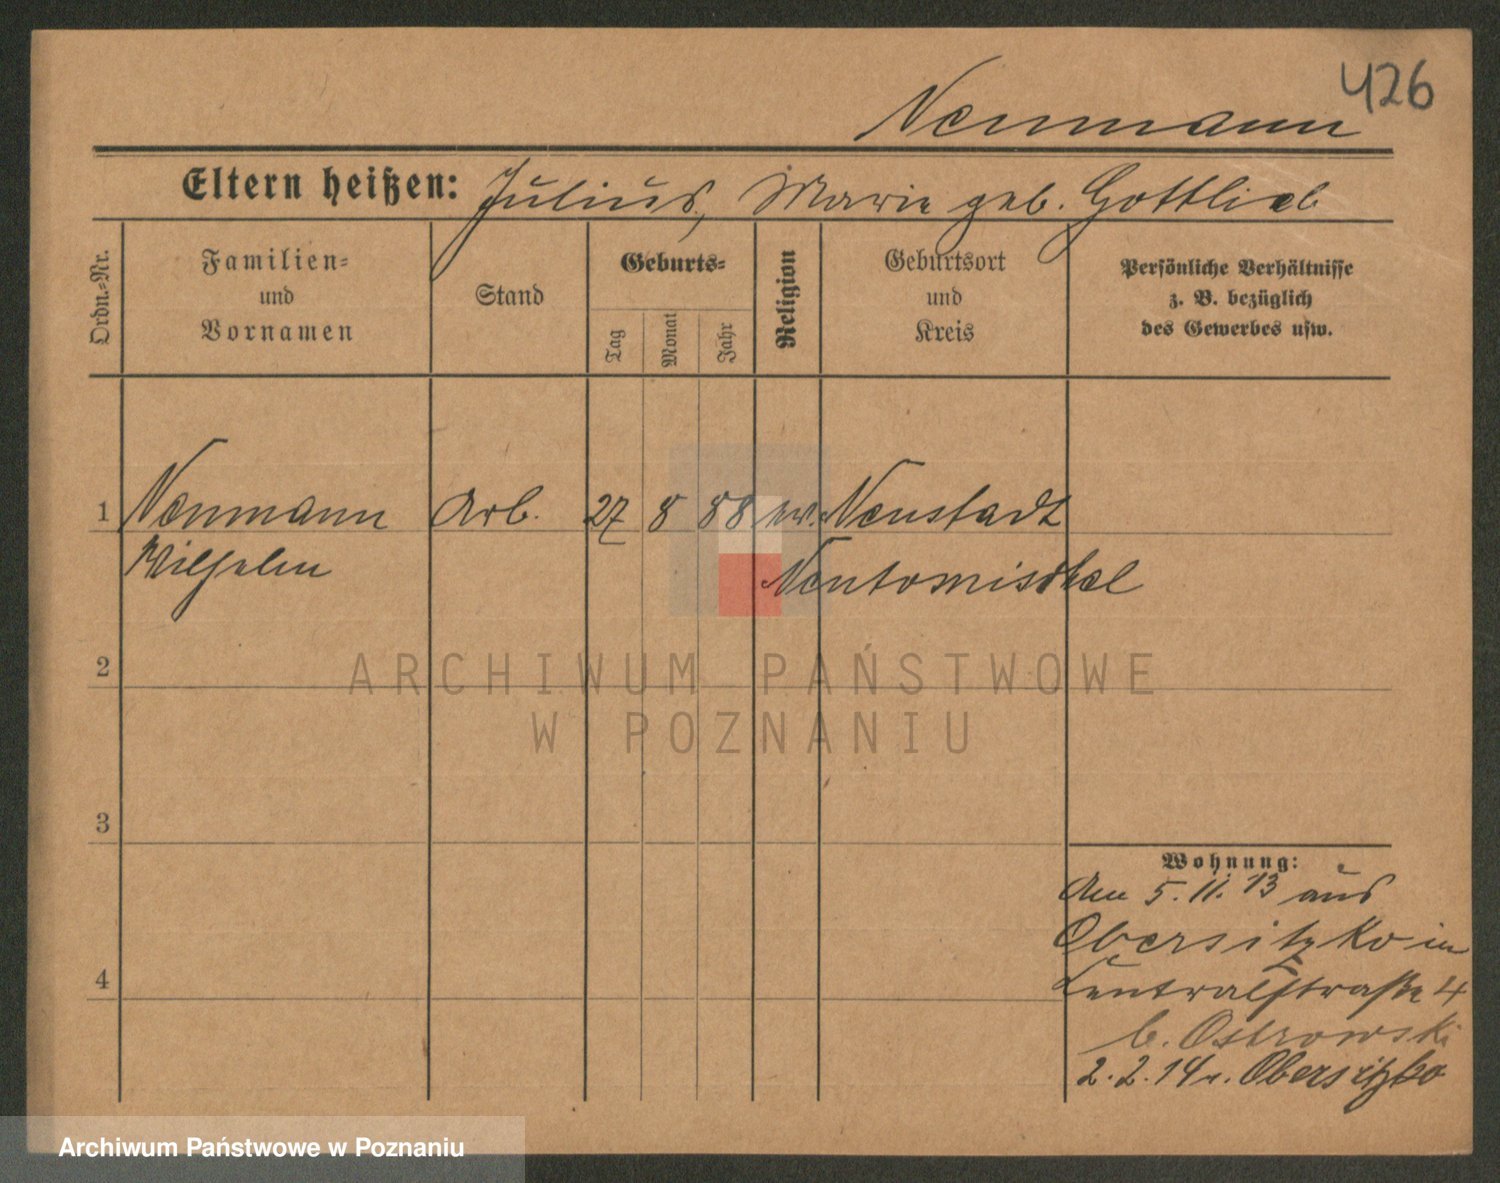 426
Neumann
Eltern heißen: Julius, Marie geb. Gottlieb
Ordn.=Nr.
Familien=
und
Vornamen
Stand
Geburts=
Tag
Monat
Jahr
Religion
Geburtsort
und
Kreis
Persönliche Verhältnisse
z. B. bezüglich
des Gewerbes usw.
1 Neumann Arb. 27 8 88 ev. Neustadt
Wilhelm Neutomischel
2
ARCHIWUM PAŃSTWOWE
W POZNANIU
3
Wohnung:
Am 5.11.13 aus
Obersitzko in
4 Centralstraße 4
b. Ostrowski
2.2.14 n. Obersitzko
Archiwum Państwowe w Poznaniu